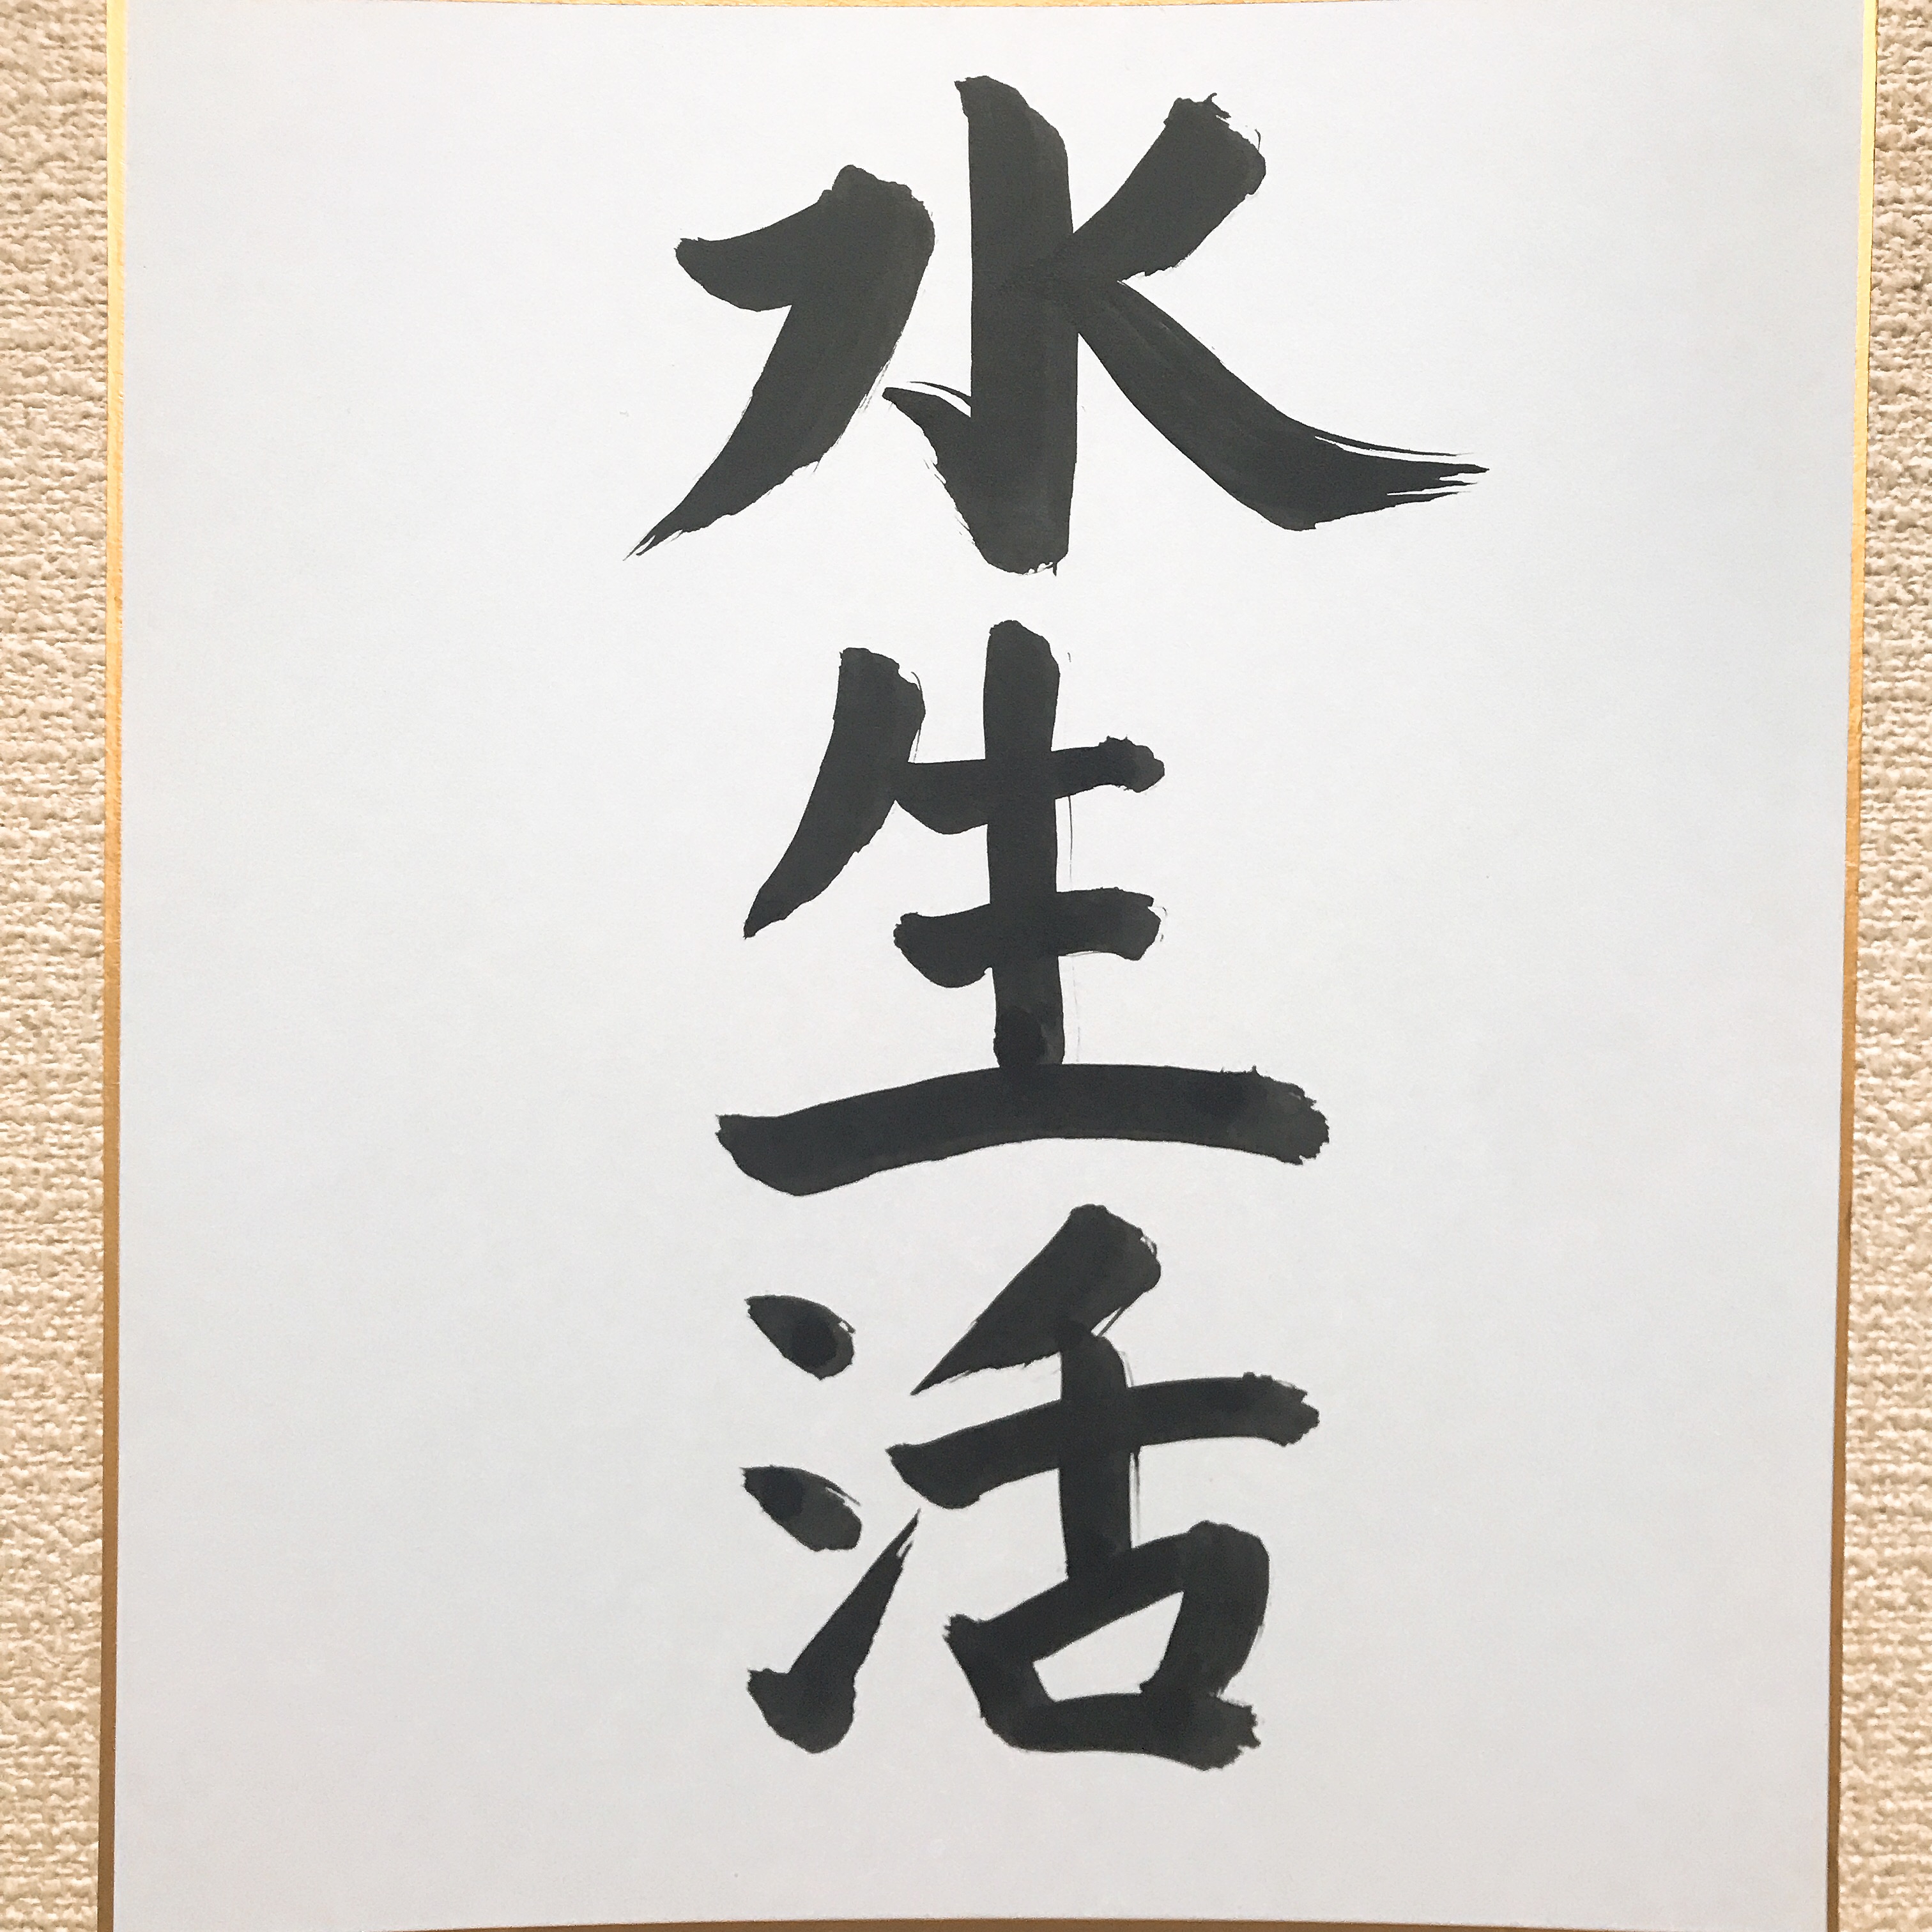 水生活